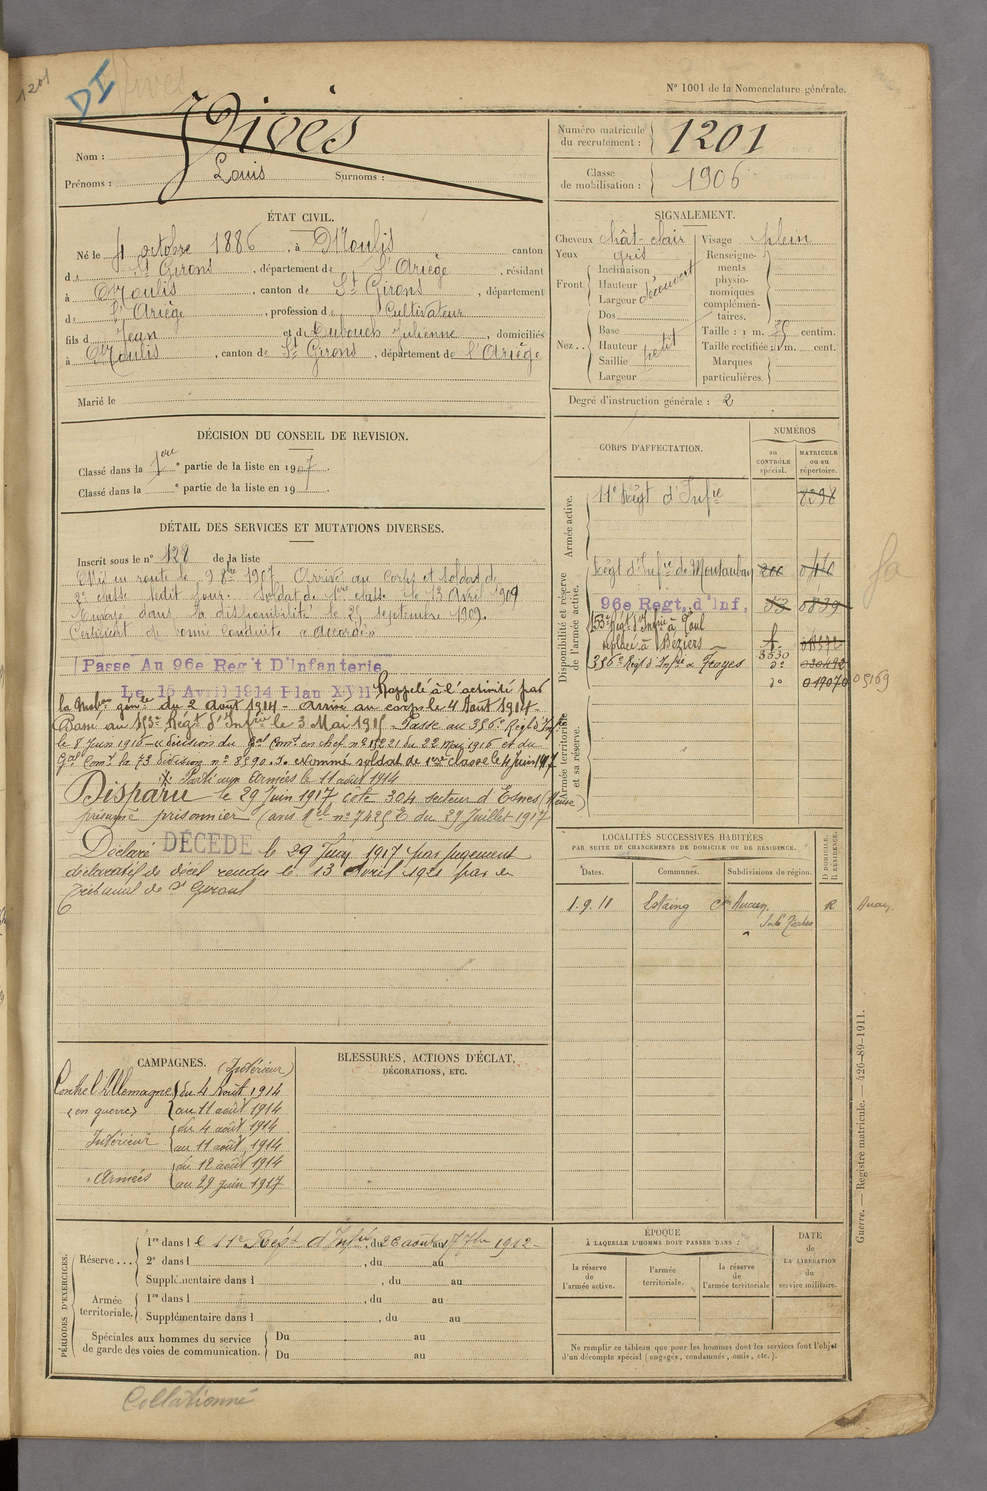 1201
DI
Vives
N° 1001 de la Nomenclature générale.
Nom : Vives
Prénoms : Louis Surnoms :
Numéro matricule du recrutement : 1201
Classe de mobilisation : 1906
ÉTAT CIVIL.
Né le 4 octobre 1886, à Moulis canton
de St Girons, département de l'Ariège, résidant
à Moulis, canton de St Girons, département
de l'Ariège, profession de Cultivateur
fils de Jean et de Dubouch Julienne, domiciliés
à Moulis, canton de St Girons, département de l'Ariège
Marié le
SIGNALEMENT.
Cheveux chât-clair Visage plein
Yeux gris
Front. Inclinaison
Hauteur
Largeur
découvert
Nez.. Dos
Base
Hauteur
Saillie
Largeur
petit
Renseignements physionomiques complémentaires.
Taille : 1 m. centim.
Taille rectifiée : 1 m. cent.
Marques particulières.
Degré d'instruction générale : 2
DÉCISION DU CONSEIL DE REVISION.
Classé dans la 1ere partie de la liste en 1907.
Classé dans la e partie de la liste en 19 .
DÉTAIL DES SERVICES ET MUTATIONS DIVERSES.
Inscrit sous le n° 128 de la liste
Mis en route le 9 8bre 1907. Arrivé au corps et soldat de
2e classe ledit jour. Soldat de 1ere classe le 13 Avril 1909
Envoyé dans la disponibilité le 25 septembre 1909.
Certificat de bonne conduite « Accordé »
Passé Au 96e Reg't D'Infanterie
Le 15 Avril 1914 Plan XVII Rappelé à l'activité par
la Mobon génle du 2 août 1914 - Arrivé au corps le 4 Août 1914 -
Passé au 153e Régt d'Infrie le 3 Mai 1915 - Passé au 356e Régt d'Infie
le 8 Juin 1916 - décision du Gal Comt en chef n° 15221 du 22 Mai 1916 et du
Gal Comt la 73 division n° 8590. Nommé soldat de 1ere classe le 4 juin 1917
Parti aux Armées le 11 août 1914
Disparu le 29 Juin 1917 côte 304 secteur d'Esnes (Meuse)
présumé prisonnier (avis Mel n° 7425 E du 29 Juillet 1917
Déclaré DÉCÉDÉ le 29 Juin 1917 par jugement
déclaratif de décès rendu le 13 Avril 1921 par le
Tribunal de St Girons
CORPS D'AFFECTATION.
NUMÉROS
au CONTRÔLE spécial.
MATRICULE ou au répertoire.
Armée active.
11e Régt d'Infie 8298
Disponibilité et réserve de l'armée active.
Régt d'Infie de Montauban
96e Regt, d'Inf, 53 0839
153e Régt d'Infrie à Toul
Replacé à Béziers
356e Régt d'Infie à Troyes
do 019070 05169
Armée territoriale et sa réserve.
LOCALITÉS SUCCESSIVES HABITÉES
PAR SUITE DE CHANGEMENTS DE DOMICILE OU DE RÉSIDENCE.
Dates. Communes. Subdivisions de région. D DOMICILE. R RÉSIDENCE.
1.9.11 Estaing con Aucun R
Sub. Tarbes
CAMPAGNES. (Intérieur)
Contre l'Allemagne du 4 Août 1914
(en guerre) au 11 août 1914
Intérieur du 4 août 1914
au 11 août 1914
Armées du 12 août 1914
au 29 juin 1917
BLESSURES, ACTIONS D'ÉCLAT,
DÉCORATIONS, ETC.
PÉRIODES D'EXERCICES.
Réserve... 1re dans le 11e Régt d'Infie, du 20 août au 7 7bre 1912
2e dans l , du au
Supplémentaire dans l , du au
Armée territoriale. 1re dans l , du au
Supplémentaire dans l , du au
Spéciales aux hommes du service de garde des voies de communication. Du au
Du au
ÉPOQUE
À LAQUELLE L'HOMME DOIT PASSER DANS :
la réserve de l'armée active.
l'armée territoriale.
la réserve de l'armée territoriale
DATE de LA LIBÉRATION du service militaire.
Ne remplir ce tableau que pour les hommes dont les services font l'objet
d'un décompte spécial (engagés, condamnés, omis, etc.).
Guerre. — Registre matricule. — 426-89-1911.
Collationné